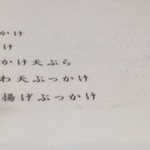 かけ
け
かけ天ぷら
わ天ぶっかけ
揚げぶっかけ